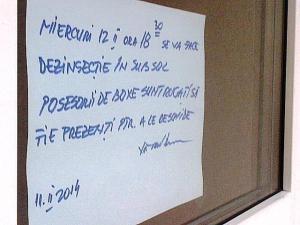 MIERCURI 12 II ORA 18 30 SE VA FACE
DEZINSECȚIE ÎN SUBSOL
POSESORII DE BOXE SUNT RUGAȚI SĂ
FIE PREZENȚI PTR. A LE DESCHIDE
11.II 2014